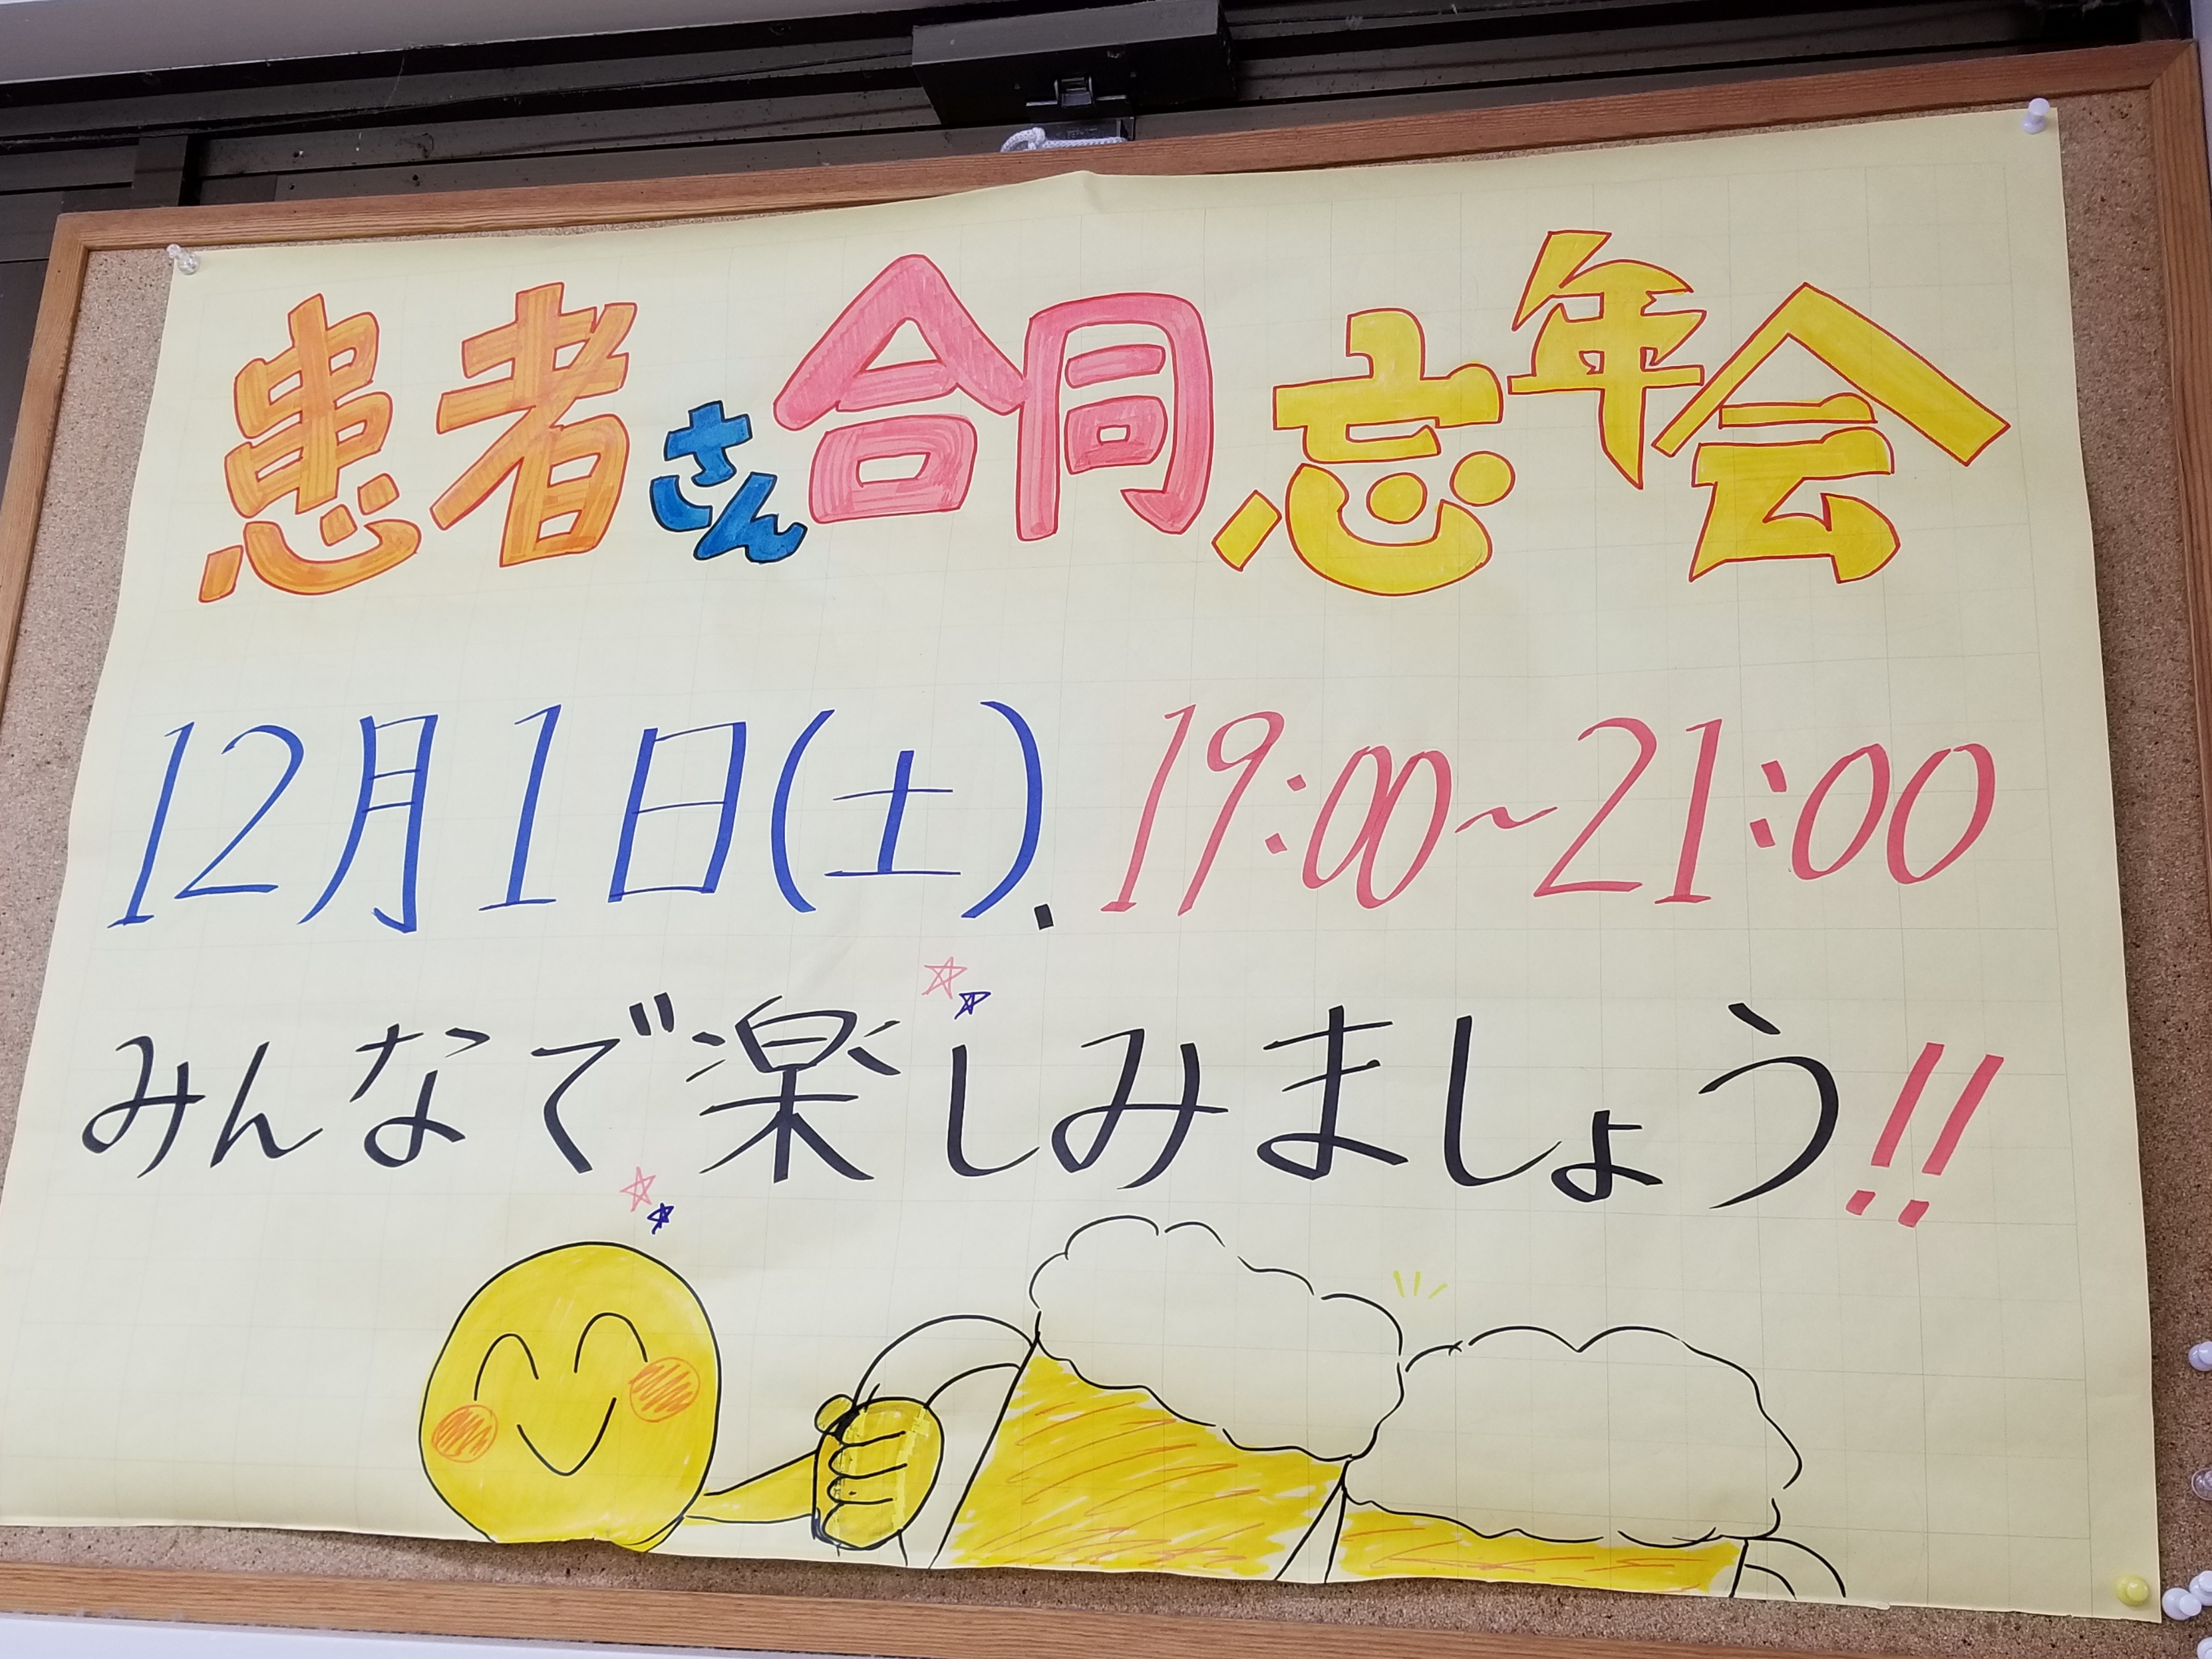 患者さん合同忘年会
12月1日(土). 19:00~21:00
みんなで楽しみましょう!!